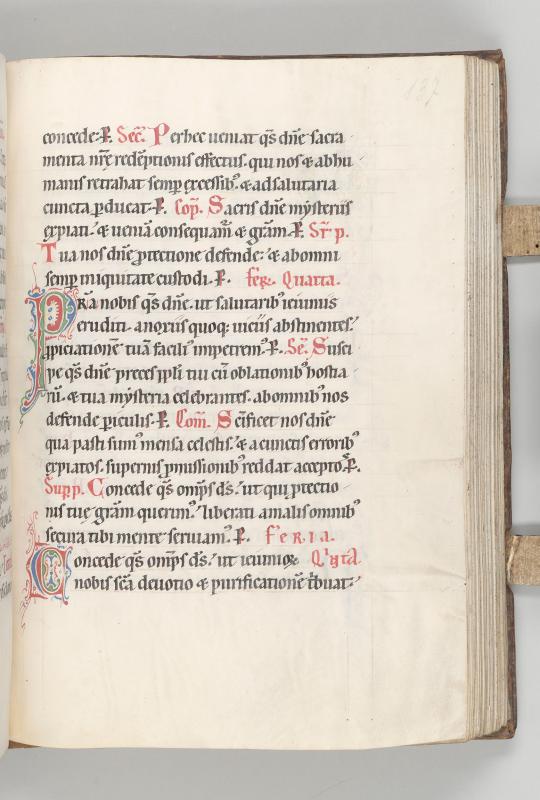 137
concede. P. Sec̄. Per hec ueniat q̄s dn̄e sacra
menta nr̄e redēptionis effectus. qui nos & ab hu
manis retrahat semꝑ excessib⁹. & ad salutaria
cuncta ꝑducat. P. Cop̄. Sacris dn̄e mysteriis
expiati. & ueniā consequam̄ & grām. P. Sr̄ p.
Tua nos dn̄e ꝓtectione defende. & ab omni
semꝑ iniquitate custodi. P. fer̄. Quarta.
Pr̄a nobis q̄s dn̄e. ut salutarib⁹ ieiuniis
eruditi. a noxiis quoq; uiciis abstinentes.
ꝓpiciationē tuā facili⁹ impetrem⁹. P. Se. Susci
pe q̄s dn̄e preces ppl̄i tui cū oblationib⁹ hostia
rū. & tua mysteria celebrantes. ab omnib⁹ nos
defende ꝑiculis. P. Com̄. Sc̄ificet nos dn̄e
qua pasti sum⁹ mensa celestis. & a cunctis errorib⁹
expiatos. supernis ꝓmissionib⁹ reddat acceptos. P.
Sup̄ p. Concede q̄s omp̄s ds̄. ut qui ꝓtectio
nis tuę grām querim⁹. liberati a malis omnib⁹
secura tibi mente seruiam⁹. P. FERIA.
Concede q̄s omp̄s ds̄. ut ieiuniorꝝ Qⁱnta
nobis sc̄a deuotio & purificationē t̄buat.